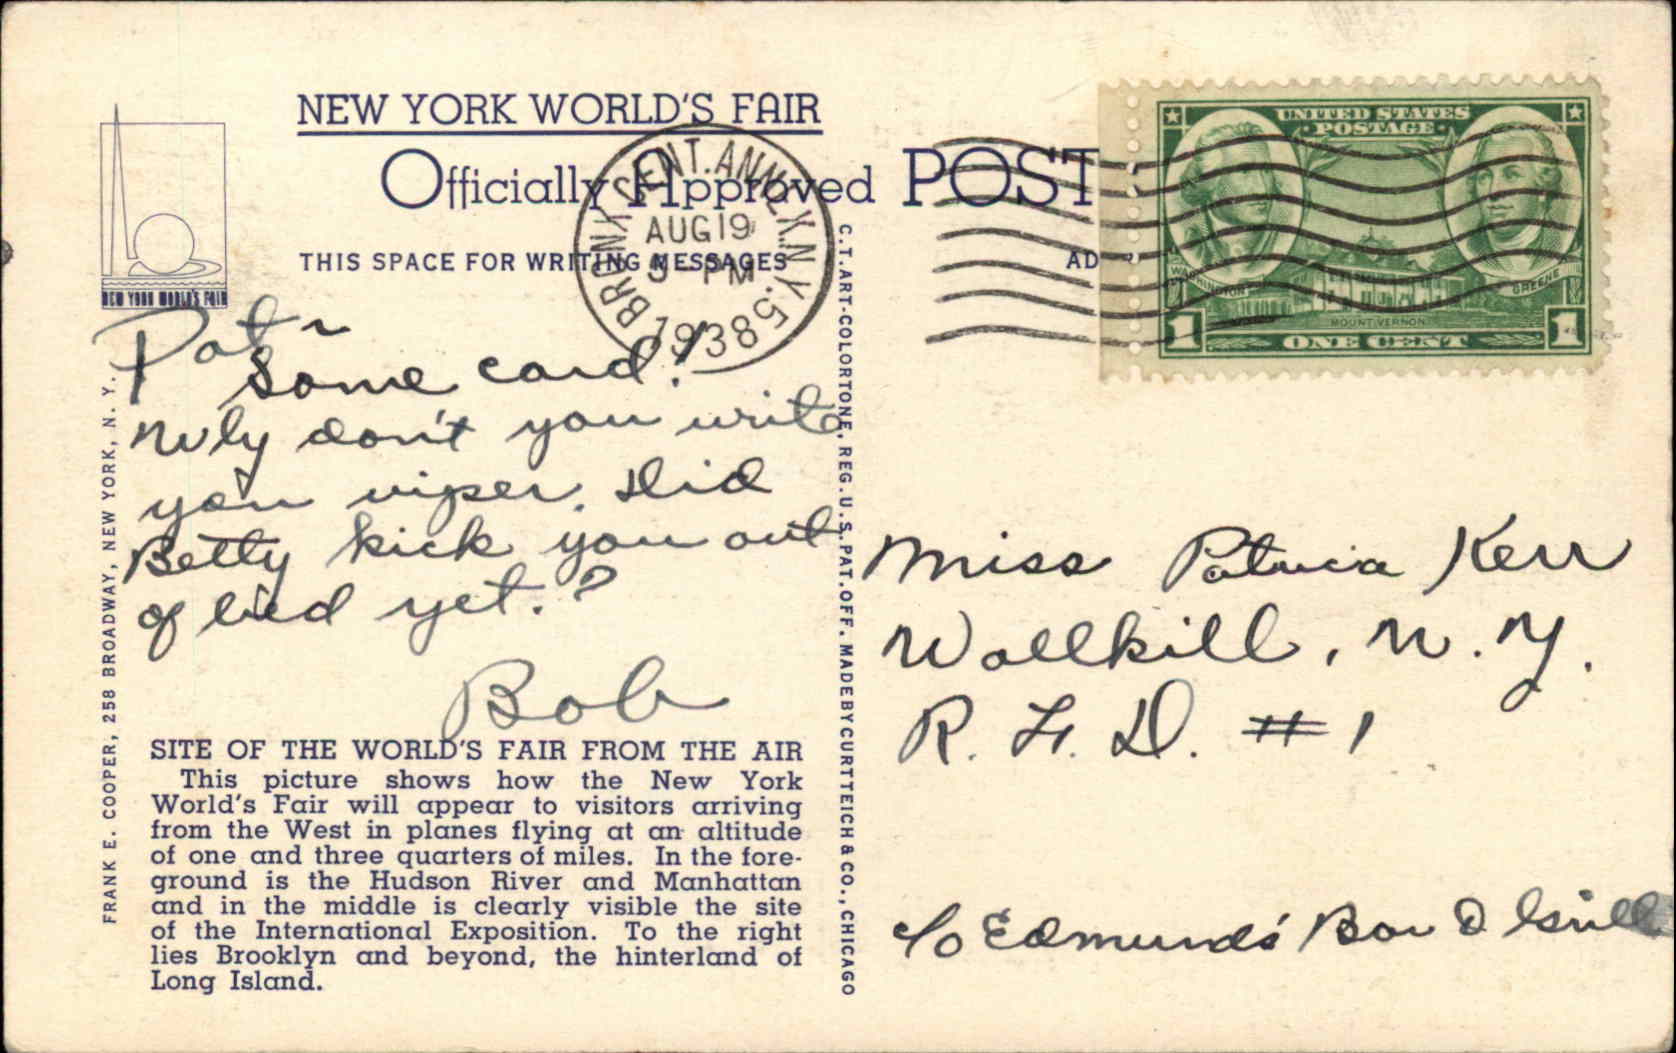 NEW YORK WORLD'S FAIR
Officially Approved POST
THIS SPACE FOR WRITING MESSAGES
AD
NEW YORK WORLD'S FAIR
BRNX CENT. ANNEX N.Y. 58
AUG 19
5 - PM
1938
UNITED STATES
POSTAGE
WASHINGTON
GREENE
MOUNT VERNON
1 ONE CENT 1
Pat ~
Some card!
don't you write
you viper. Did
Betty kick you out
of bed yet.?
Bob
SITE OF THE WORLD'S FAIR FROM THE AIR
This picture shows how the New York
World's Fair will appear to visitors arriving
from the West in planes flying at an altitude
of one and three quarters of miles. In the fore-
ground is the Hudson River and Manhattan
and in the middle is clearly visible the site
of the International Exposition. To the right
lies Brooklyn and beyond, the hinterland of
Long Island.
FRANK E. COOPER, 258 BROADWAY, NEW YORK, N. Y.
C.T. ART-COLORTONE, REG. U.S. PAT. OFF. MADE BY CURT TEICH & CO., CHICAGO
Miss Patricia Kerr
Wallkill, N. Y.
R. F. D. #1
c/o Edmund's Bar & Grill